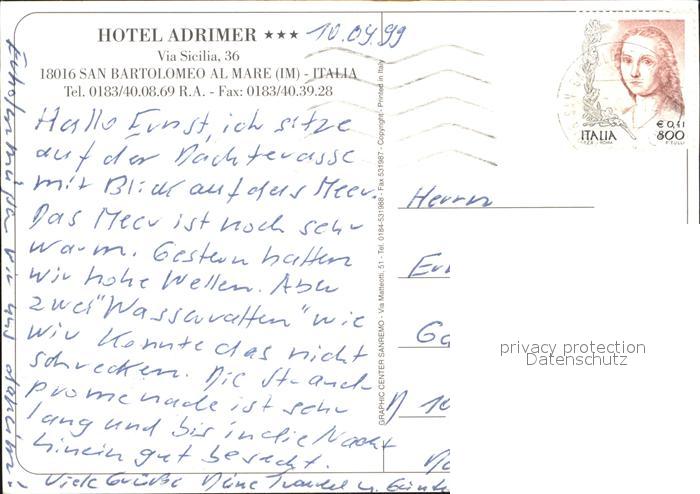 HOTEL ADRIMER ★★★
Via Sicilia, 36
18016 SAN BARTOLOMEO AL MARE (IM) - ITALIA
Tel. 0183/40.08.69 R.A. - Fax: 0183/40.39.28
10.09.99
Hallo Ernst, ich sitze
auf der Dachterasse
mit Blick auf das Meer.
Das Meer ist noch sehr
warm. Gestern hatten
wir hohe Wellen. Aber
zwei "Wasserratten" wie
wir konnte das nicht
schrecken. Die Strand
promenade ist sehr
lang und bis in die Nacht
hinein gut besucht.
Viele Grüße Deine
Erholen müssen wir uns daheim
GRAPHIC CENTER SANREMO - Via Matteotti, 51 - Tel. 0184-531988 - Fax 531987 - Copyright - Printed in Italy
ITALIA
€ 0,41
800
Herrn
D
privacy protection
Datenschutz